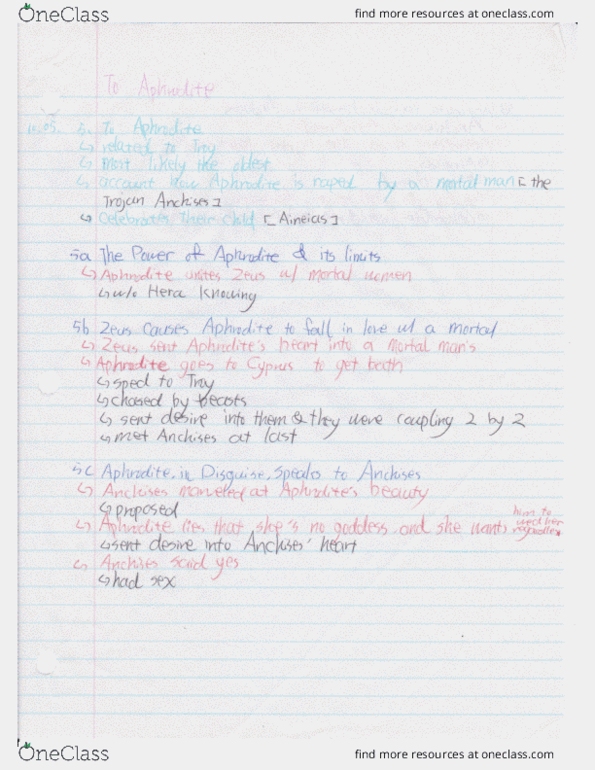 OneClass
find more resources at oneclass.com
To Aphrodite
5. To Aphrodite
↳ related to Troy
↳ most likely the oldest
↳ account how Aphrodite is raped by a mortal man [the
Trojan Anchises]
↳ Celebrates their child [Aineias]
5a The Power of Aphrodite & its limits
↳ Aphrodite unites Zeus w/ mortal women
↳ w/o Hera knowing
5b Zeus Causes Aphrodite to fall in love w/ a mortal
↳ Zeus sent Aphrodite's heart into a mortal man's
↳ Aphrodite goes to Cyprus to get bath
↳ sped to Troy
↳ chased by beasts
↳ sent desire into them & they were coupling 2 by 2
↳ met Anchises at last
5c Aphrodite, in Disguise, Speaks to Anchises
↳ Anchises marveled at Aphrodite's beauty
↳ proposed
↳ Aphrodite lies that she's no goddess and she wants him to wed her regardless
↳ sent desire into Anchises' heart
↳ Anchises said yes
↳ had sex
OneClass
find more resources at oneclass.com